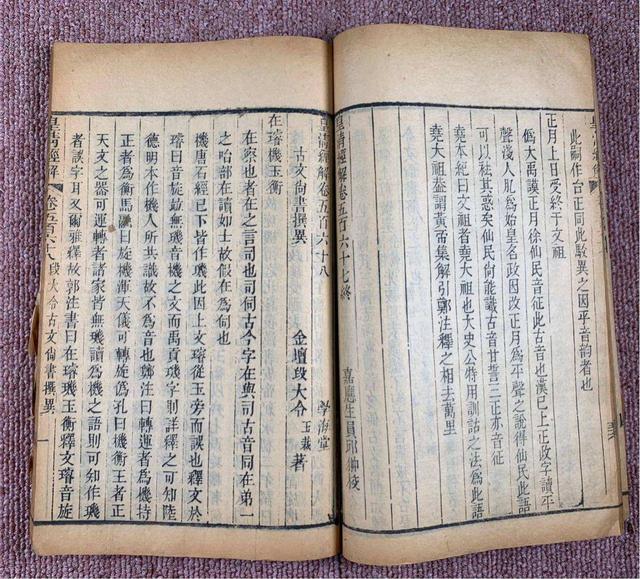 此祠作台正同此駁異之因平音韵者也
正月上日受終于文祖
偽大禹謨正月徐仙民音征此古音也漢已上正政字讀平
聲淺人乩為始皇名政因改正月為平聲之說得仙民此語
可以祛其惑矣仙民尙能識古音甘誓三正亦音征
堯本紀曰文祖者堯大祖也大史公特用訓詁之法為此語
堯大祖葢謂黃帝集解引鄭注釋之相去萬里
皇清經解卷五百六十七終
嘉應生員邱仲校
皇清經解卷五百六十八
學海堂
古文尙書撰異
金壇段大令玉裁著
在璿機玉衡
在察也者在之言司也司伺古今字在與司古音同在弟一
之咍部在讀如士故假在為伺也
機唐石經已下皆作璣此因上文璿從玉旁而誤也釋文於
璿曰音旋竝無音機之文而禹貢璣字則詳釋之可知陸
德明本作機人所共識故不為音也鄭注曰轉運者為機持
正者為衡馬融曰旋機渾天儀可轉旋僞孔曰機衡王者正
天文之器可運轉者諸家皆無璣讀為機之語則可知作璣
者誤字耳又爾雅釋故郭注書曰在璿璣玉衡釋文璿音旋
皇清經解
卷五百六十八
段大令古文尙書撰異
一